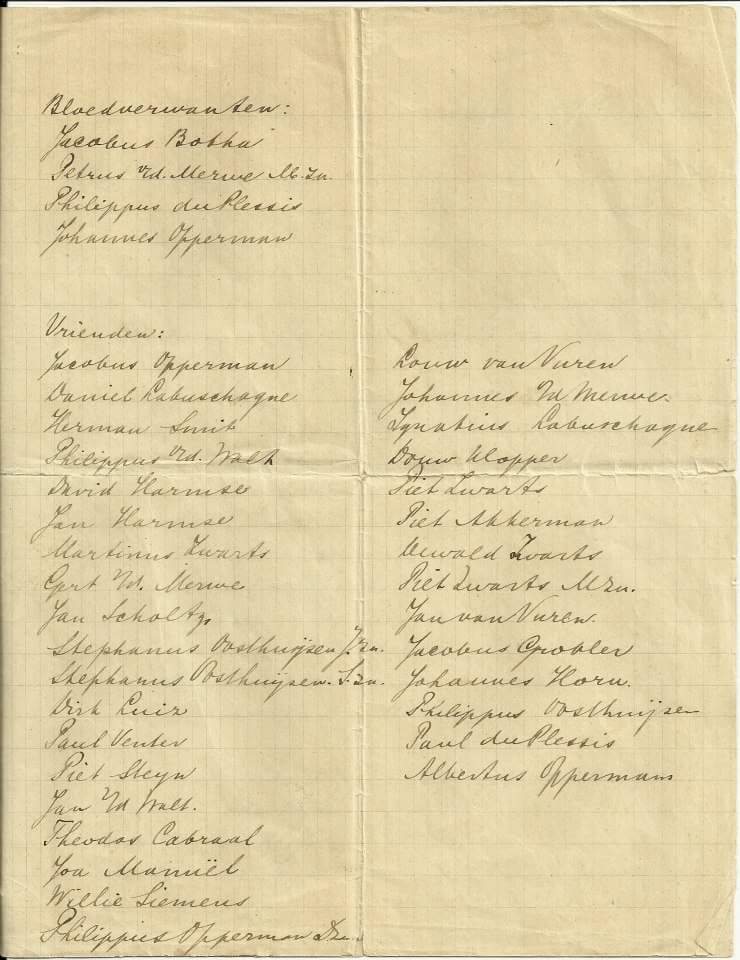 Bloedverwanten:
Jacobus Botha
Petrus v.d. Merwe M.zn.
Philippus du Plessis
Johannes Opperman
Vrienden:
Jacobus Opperman
Daniel Labuschagne
Herman Smit
Philippus v.d. Walt
David Harmse
Jan Harmse
Martinus Zwarts
Gert v.d. Merwe
Jan Scholtz
Stephanus Oosthuijsen J.zn.
Stephanus Oosthuijsen. S.zn.
Dirk
Paul Venter
Piet Steyn
Jan v d Walt.
Theodos Cabraal
Joa Maniël
Willie Siemens
Philippus Opperman Dzn.
Louw van Vuren
Johannes v d Merwe.
Ignatius Labuschagne
Douw Klopper
Piet Zwarts
Piet Akkerman
Oswald Zwarts
Piet Zwarts Mzn.
Jan van Vuren.
Jacobus Grobler
Johannes Horn.
Philippus Oosthuijsen
Paul du Plessis
Albertus Opperman